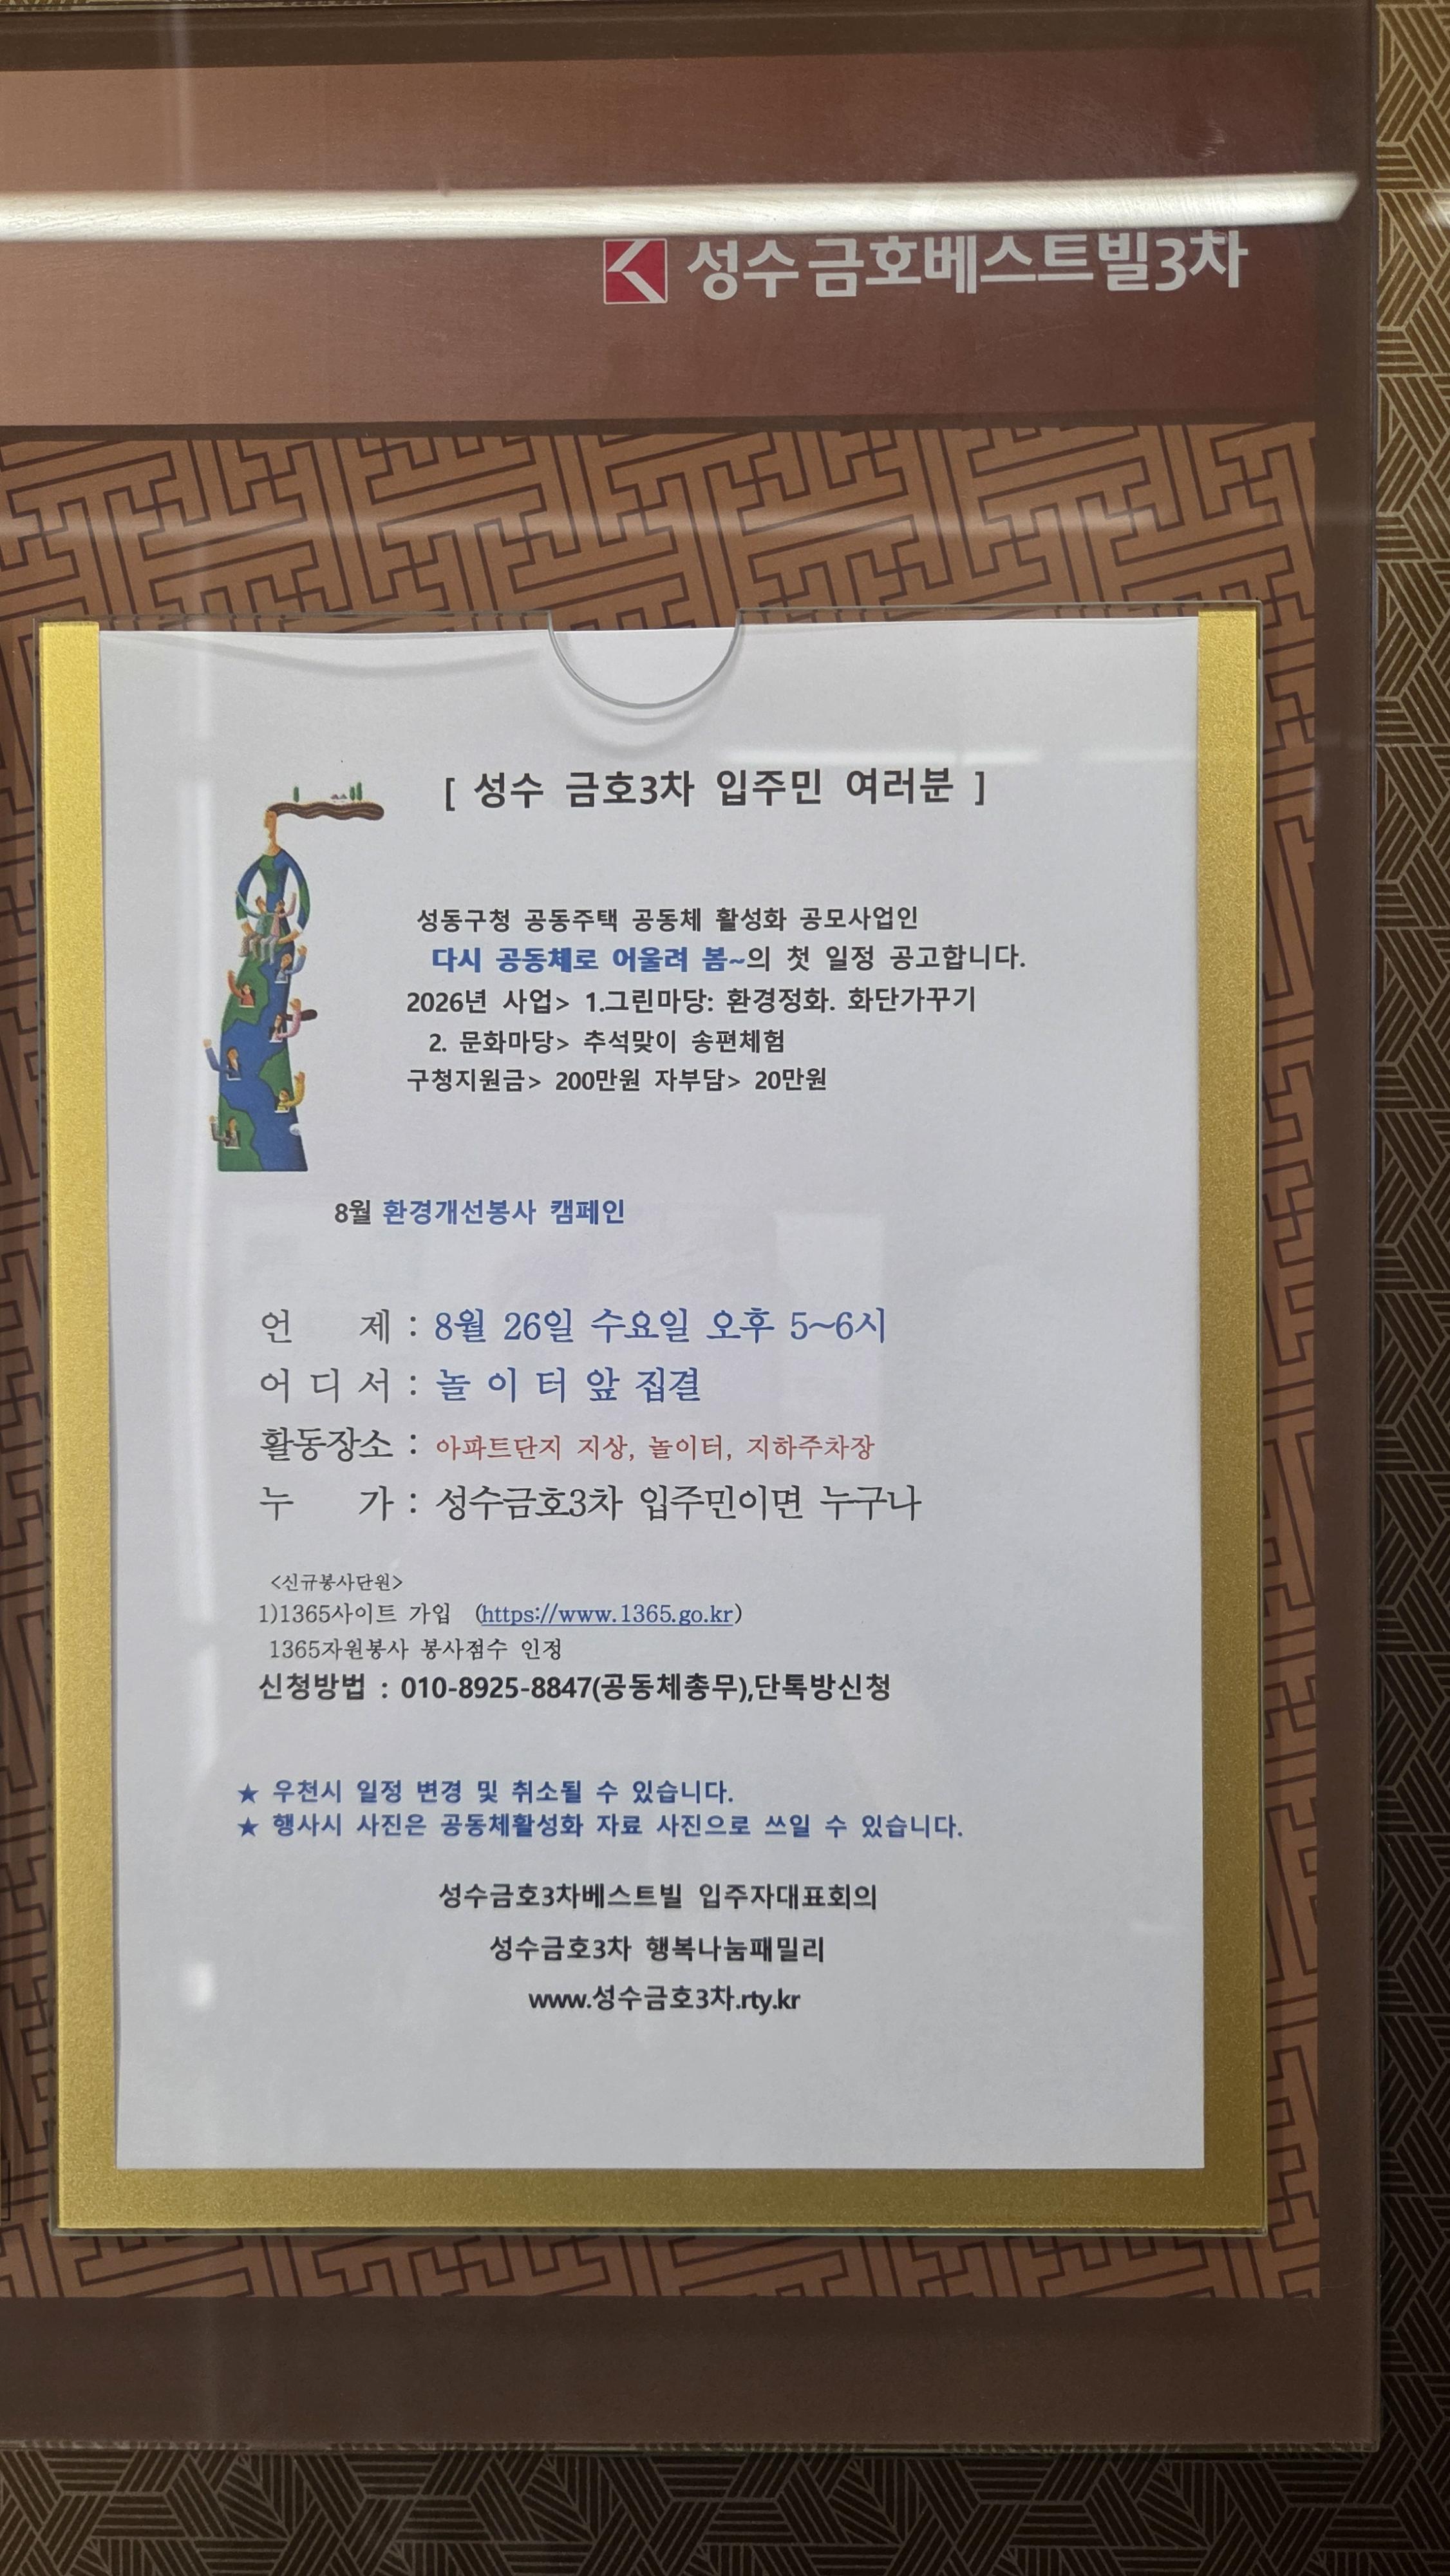 성수금호베스트빌3차
[ 성수 금호3차 입주민 여러분 ]
성동구청 공동주택 공동체 활성화 공모사업인
다시 공동체로 어울려 봄~의 첫 일정 공고합니다.
2026년 사업> 1.그린마당: 환경정화. 화단가꾸기
2. 문화마당> 추석맞이 송편체험
구청지원금> 200만원 자부담> 20만원
8월 환경개선봉사 캠페인
언 제 : 8월 26일 수요일 오후 5~6시
어 디 서 : 놀 이 터 앞 집결
활동장소 : 아파트단지 지상, 놀이터, 지하주차장
누 가 : 성수금호3차 입주민이면 누구나
<신규봉사단원>
1)1365사이트 가입 (https://www.1365.go.kr)
1365자원봉사 봉사점수 인정
신청방법 : 010-8925-8847(공동체총무),단톡방신청
★ 우천시 일정 변경 및 취소될 수 있습니다.
★ 행사시 사진은 공동체활성화 자료 사진으로 쓰일 수 있습니다.
성수금호3차베스트빌 입주자대표회의
성수금호3차 행복나눔패밀리
www.성수금호3차.rty.kr